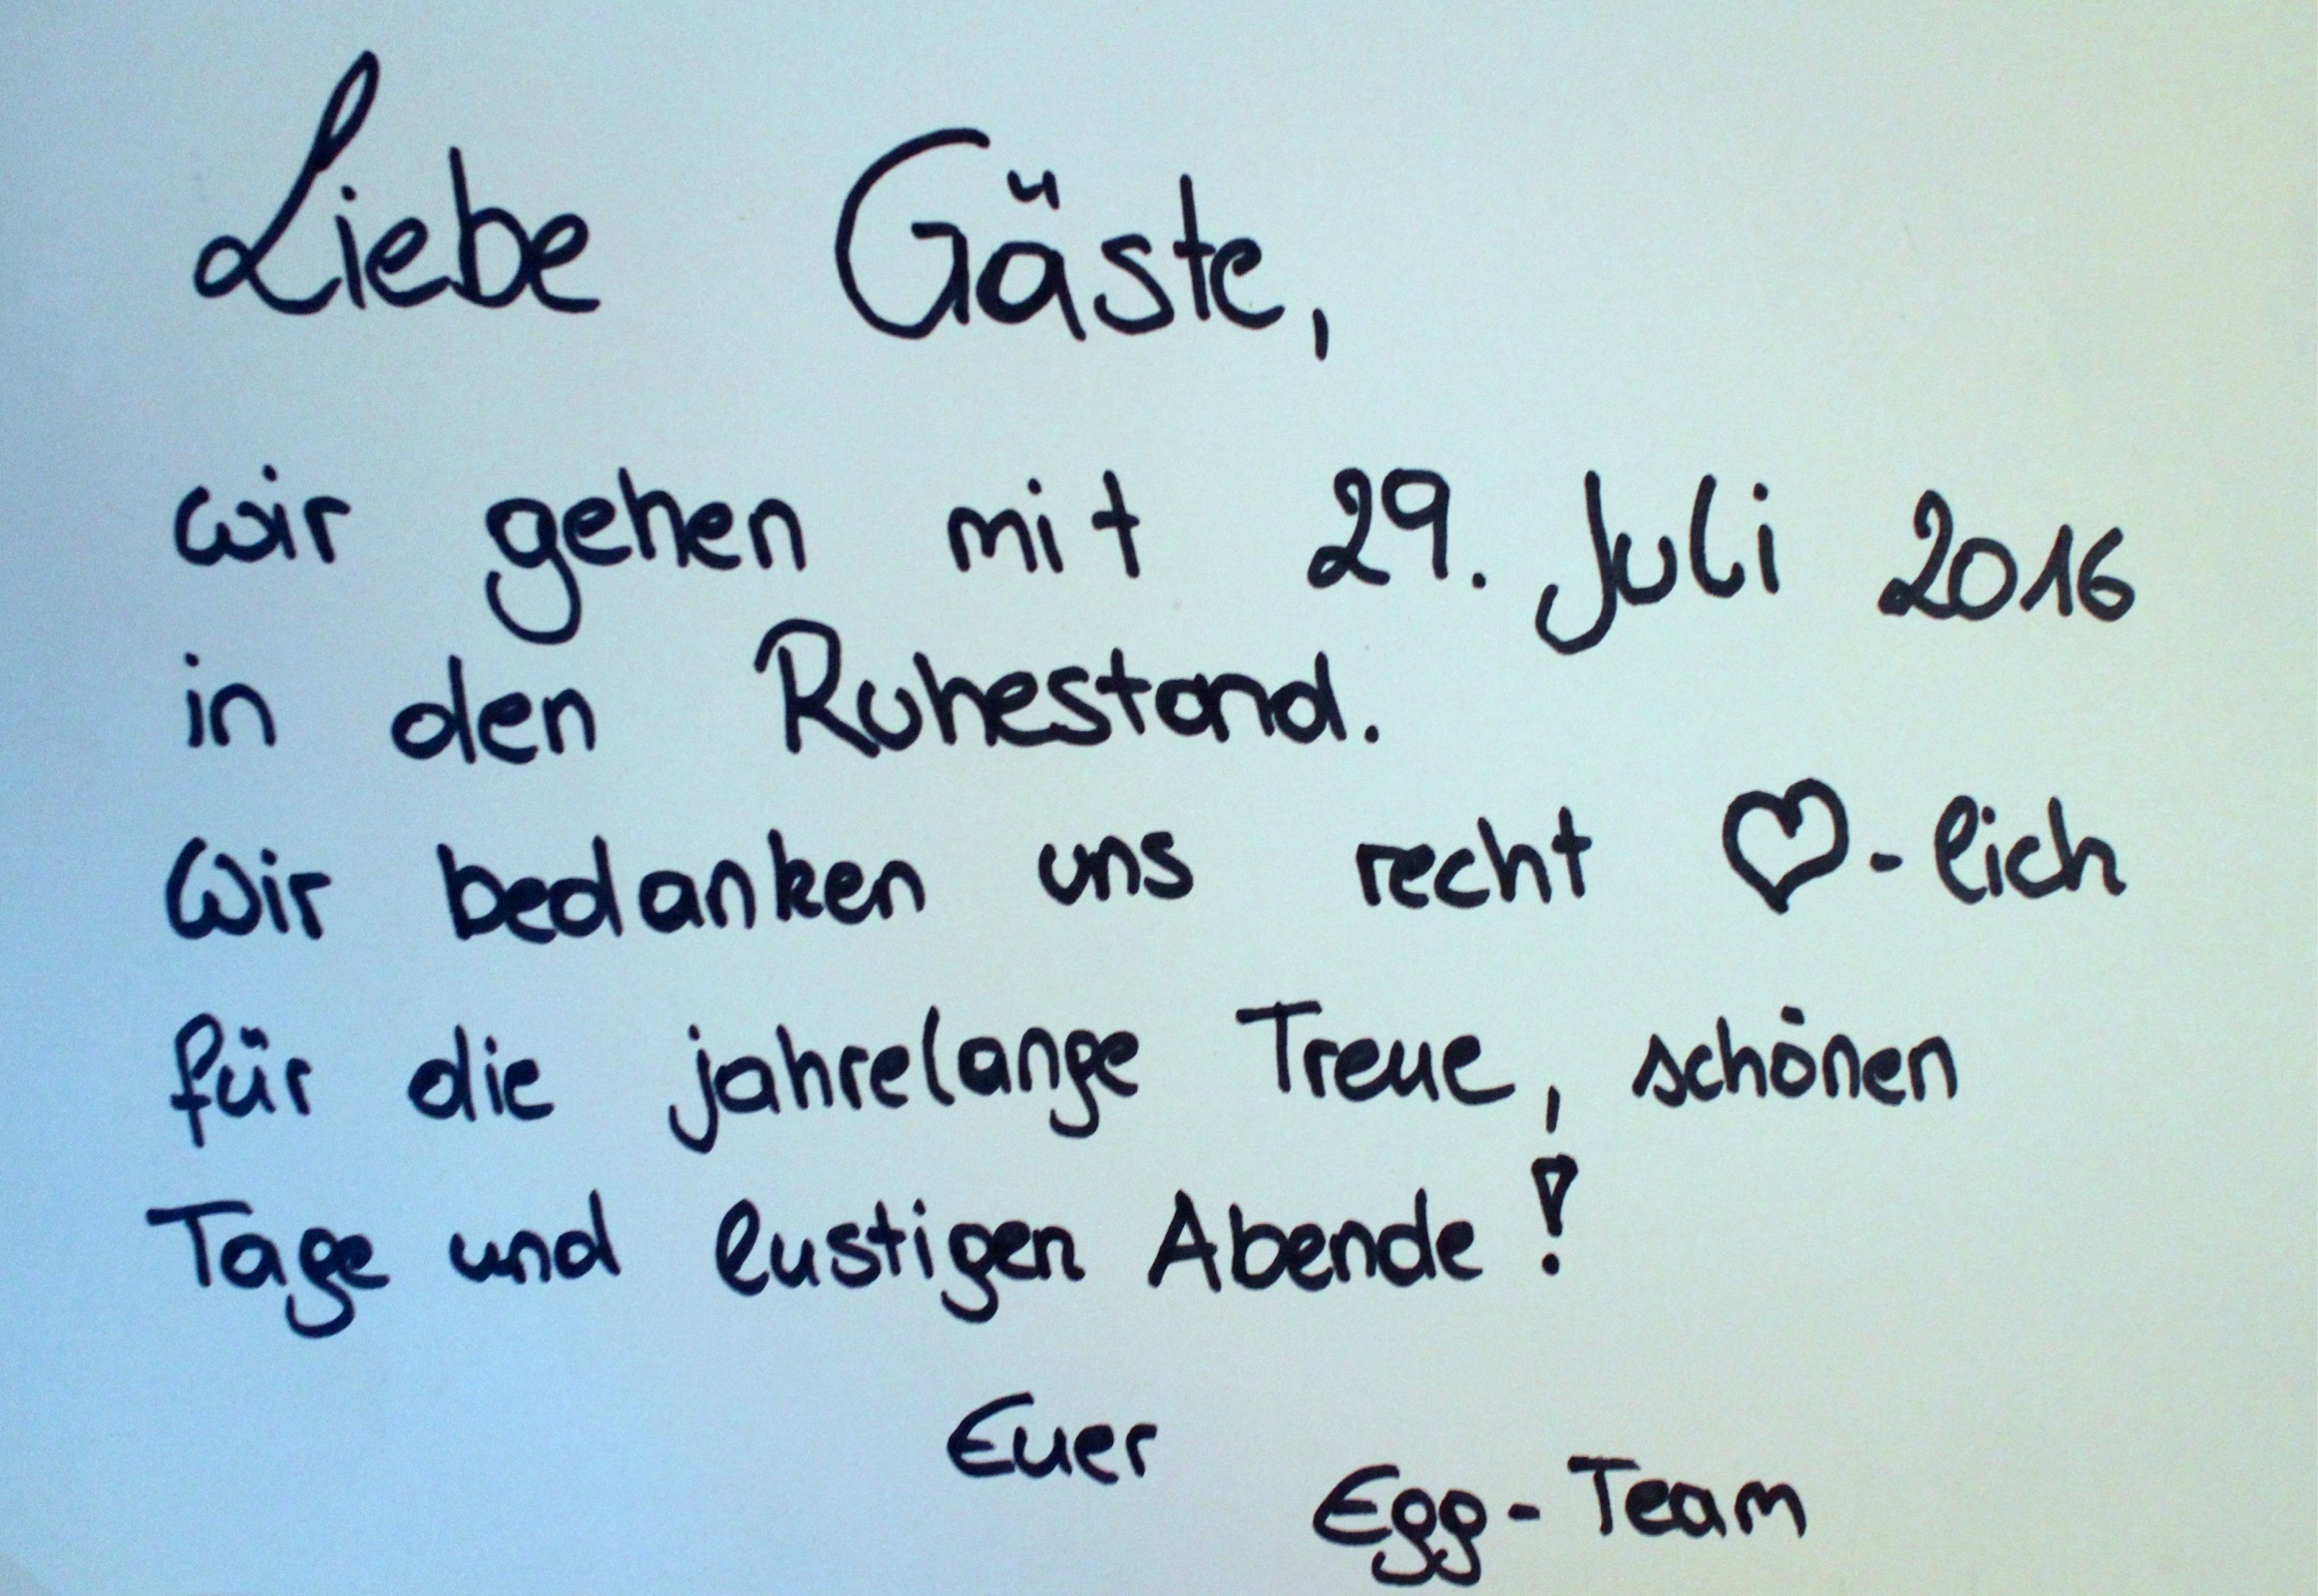 Liebe Gäste,
wir gehen mit 29. Juli 2016
in den Ruhestand.
Wir bedanken uns recht ♡-lich
für die jahrelange Treue, schönen
Tage und lustigen Abende!
Euer
Egg-Team